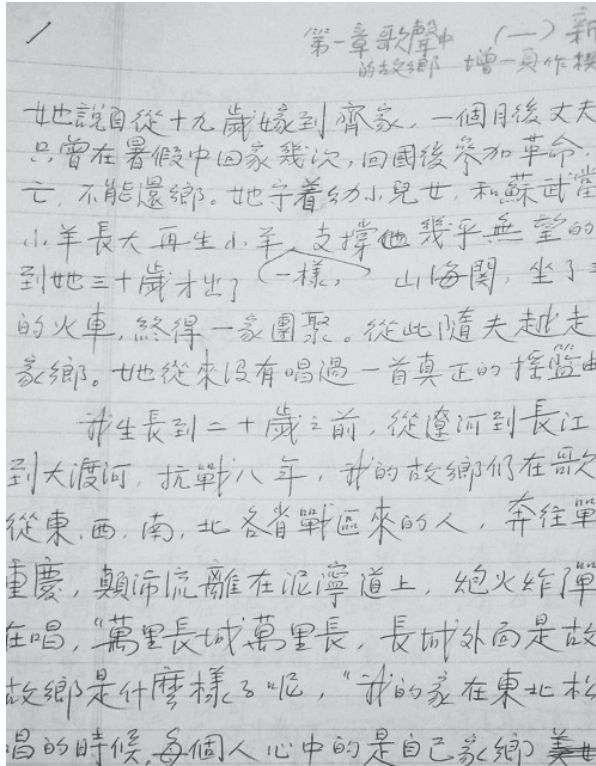 第一章 歌聲中 (一) 新
的故鄉 增一頁作模
她說自從十九歲嫁到齊家，一個月後丈夫
只曾在暑假中回家幾次，回國後參加革命，
亡，不能還鄉。她守着幼小兒女，和蘇武當
小羊長大再生小羊，支撐她幾乎無望的
到她三十歲才出了 一樣， 山海關，坐了三
的火車，終得一家團聚。從此隨夫越走
家鄉。她從來沒有唱過一首真正的搖籃曲
我生長到二十歲之前，從遼河到長江
到大渡河，抗戰八年，我的故鄉仍在歌
從東、西、南、北各省戰區來的人，奔往
重慶，顛沛流離在泥濘道上，炮火炸彈
在唱，“萬里長城萬里長，長城外面是故
故鄉是什麼樣子呢，“我的家在東北松
唱的時候，每個人心中的是自己家鄉